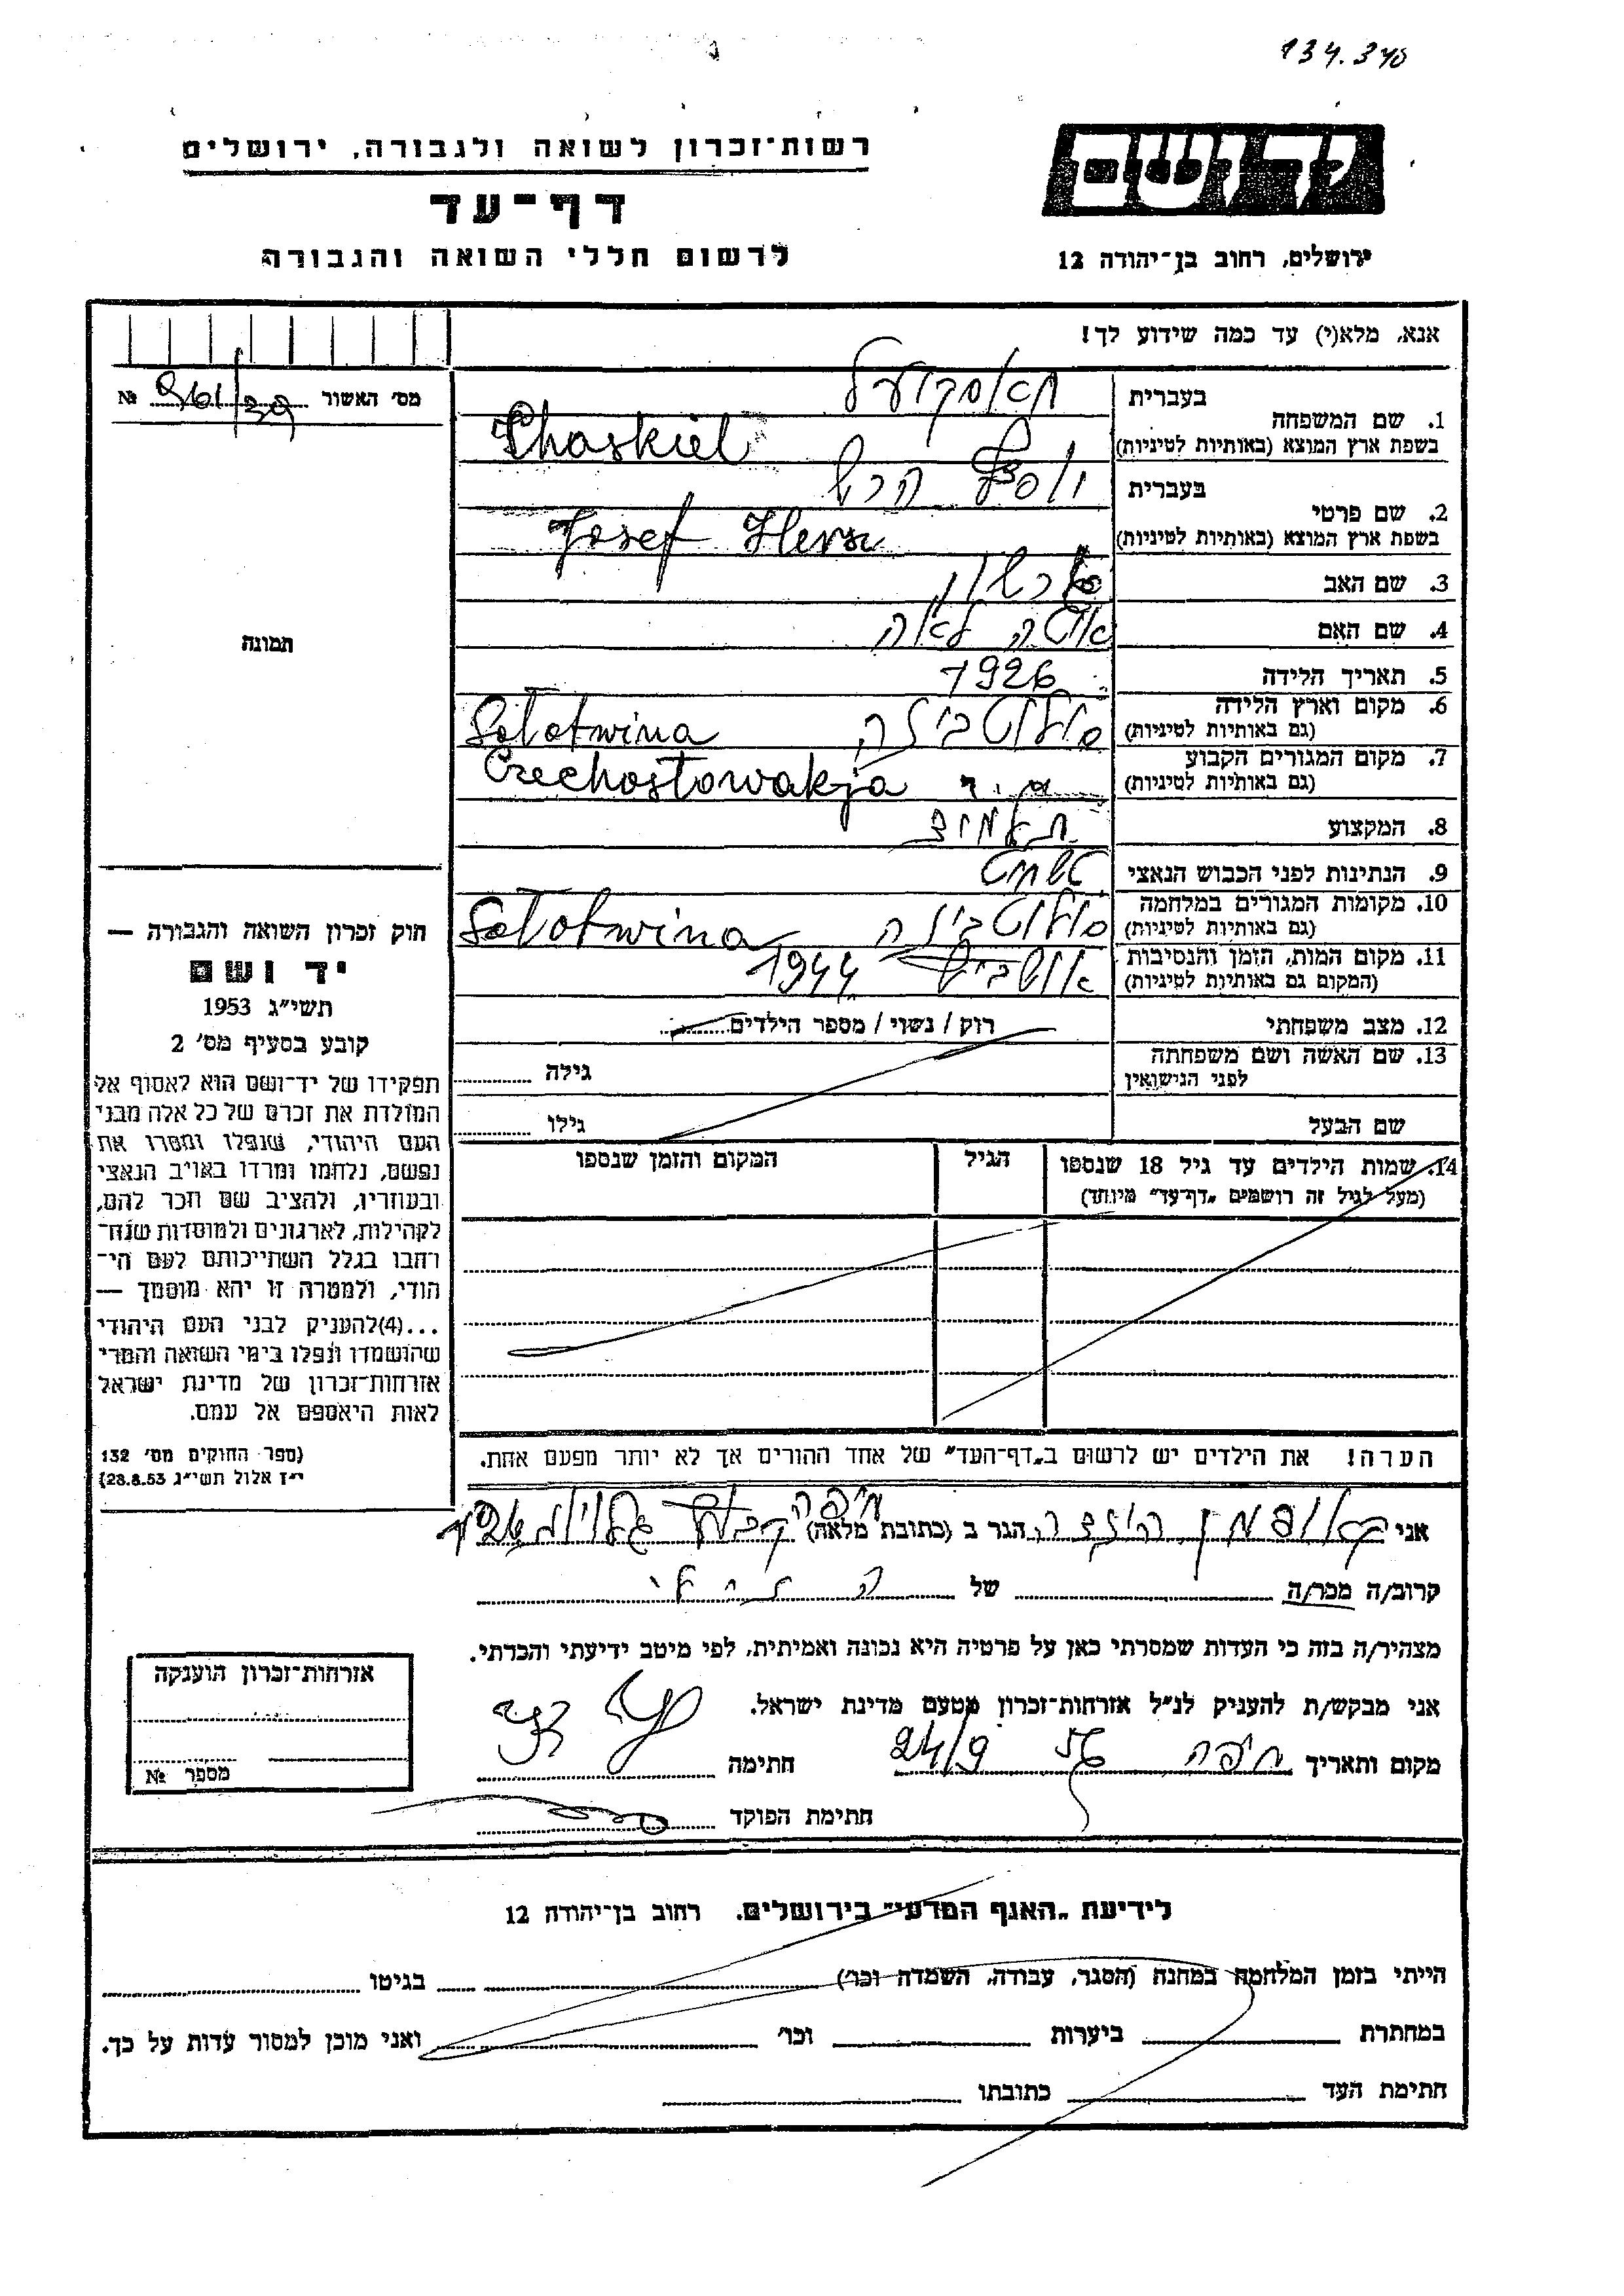 134.340
רשות־זכרון לשואה ולגבורה, ירושלים
דף־עד
לרשום חללי השואה והגבורה
יד ושם
ירושלים, רחוב בן־יהודה 12
אנא, מלא(י) עד כמה שידוע לך!
מס׳ האשור №
1. שם המשפחה
בעברית
בשפת ארץ המוצא (באותיות לטיניות) Chaskiel
2. שם פרטי
בעברית יוסף הרש
בשפת ארץ המוצא (באותיות לטיניות) Josef Hersz
3. שם האב
4. שם האם לאה
5. תאריך הלידה 1926
6. מקום וארץ הלידה
(גם באותיות לטיניות) סלוטבינה Solotwina
7. מקום המגורים הקבוע
(גם באותיות לטיניות) Czechosłowakja
8. המקצוע תלמיד
9. הנתינות לפני הכבוש הנאצי
10. מקומות המגורים במלחמה
(גם באותיות לטיניות) סלוטבינה Solotwina
11. מקום המות, הזמן והנסיבות
(המקום גם באותיות לטיניות) אושביץ 1944
12. מצב משפחתי רוק / נשוי / מספר הילדים
13. שם האשה ושם משפחתה
לפני הנישואין גילה
שם הבעל גילו
14. שמות הילדים עד גיל 18 שנספו
(מעל לגיל זה רושמים „דף־עד״ מיוחד)
הגיל
המקום והזמן שנספו
הערה! את הילדים יש לרשום ב„דף־העד״ של אחד ההורים אך לא יותר מפעם אחת.
תמונה
חוק זכרון השואה והגבורה —
יד ושם
תשי״ג 1953
קובע בסעיף מס׳ 2
תפקידו של יד־ושם הוא לאסוף אל
המולדת את זכרם של כל אלה מבני
העם היהודי, שנפלו ומסרו את
נפשם, נלחמו ומרדו באויב הנאצי
ובעוזריו, ולהציב שם וזכר להם,
לקהילות, לארגונים ולמוסדות שנח־
רבו בגלל השתייכותם לעם הי־
הודי, ולמטרה זו יהא מוסמך —
...(4) להעניק לבני העם היהודי
שהושמדו ונפלו בימי השואה והמרי
אזרחות־זכרון של מדינת ישראל
לאות היאספם אל עמם.
(ספר החוקים מס׳ 132
י״ז אלול תשי״ג 28.8.53)
אני הגר ב (כתובת מלאה) חיפה
קרוב/ה מכר/ה של
מצהיר/ה בזה כי העדות שמסרתי כאן על פרטיה היא נכונה ואמיתית, לפי מיטב ידיעתי והכרתי.
אני מבקש/ת להעניק לנ״ל אזרחות־זכרון מטעם מדינת ישראל.
מקום ותאריך חיפה 24/9 חתימה
חתימת הפוקד
אזרחות־זכרון הוענקה
מספר №
לידיעת „האגף המדעי״ בירושלים. רחוב בן־יהודה 12
הייתי בזמן המלחמה במחנה (הסגר, עבודה, השמדה וכו׳) בגיטו
במחתרת ביערות וכו׳ ואני מוכן למסור עדות על כך.
חתימת העד כתובתו